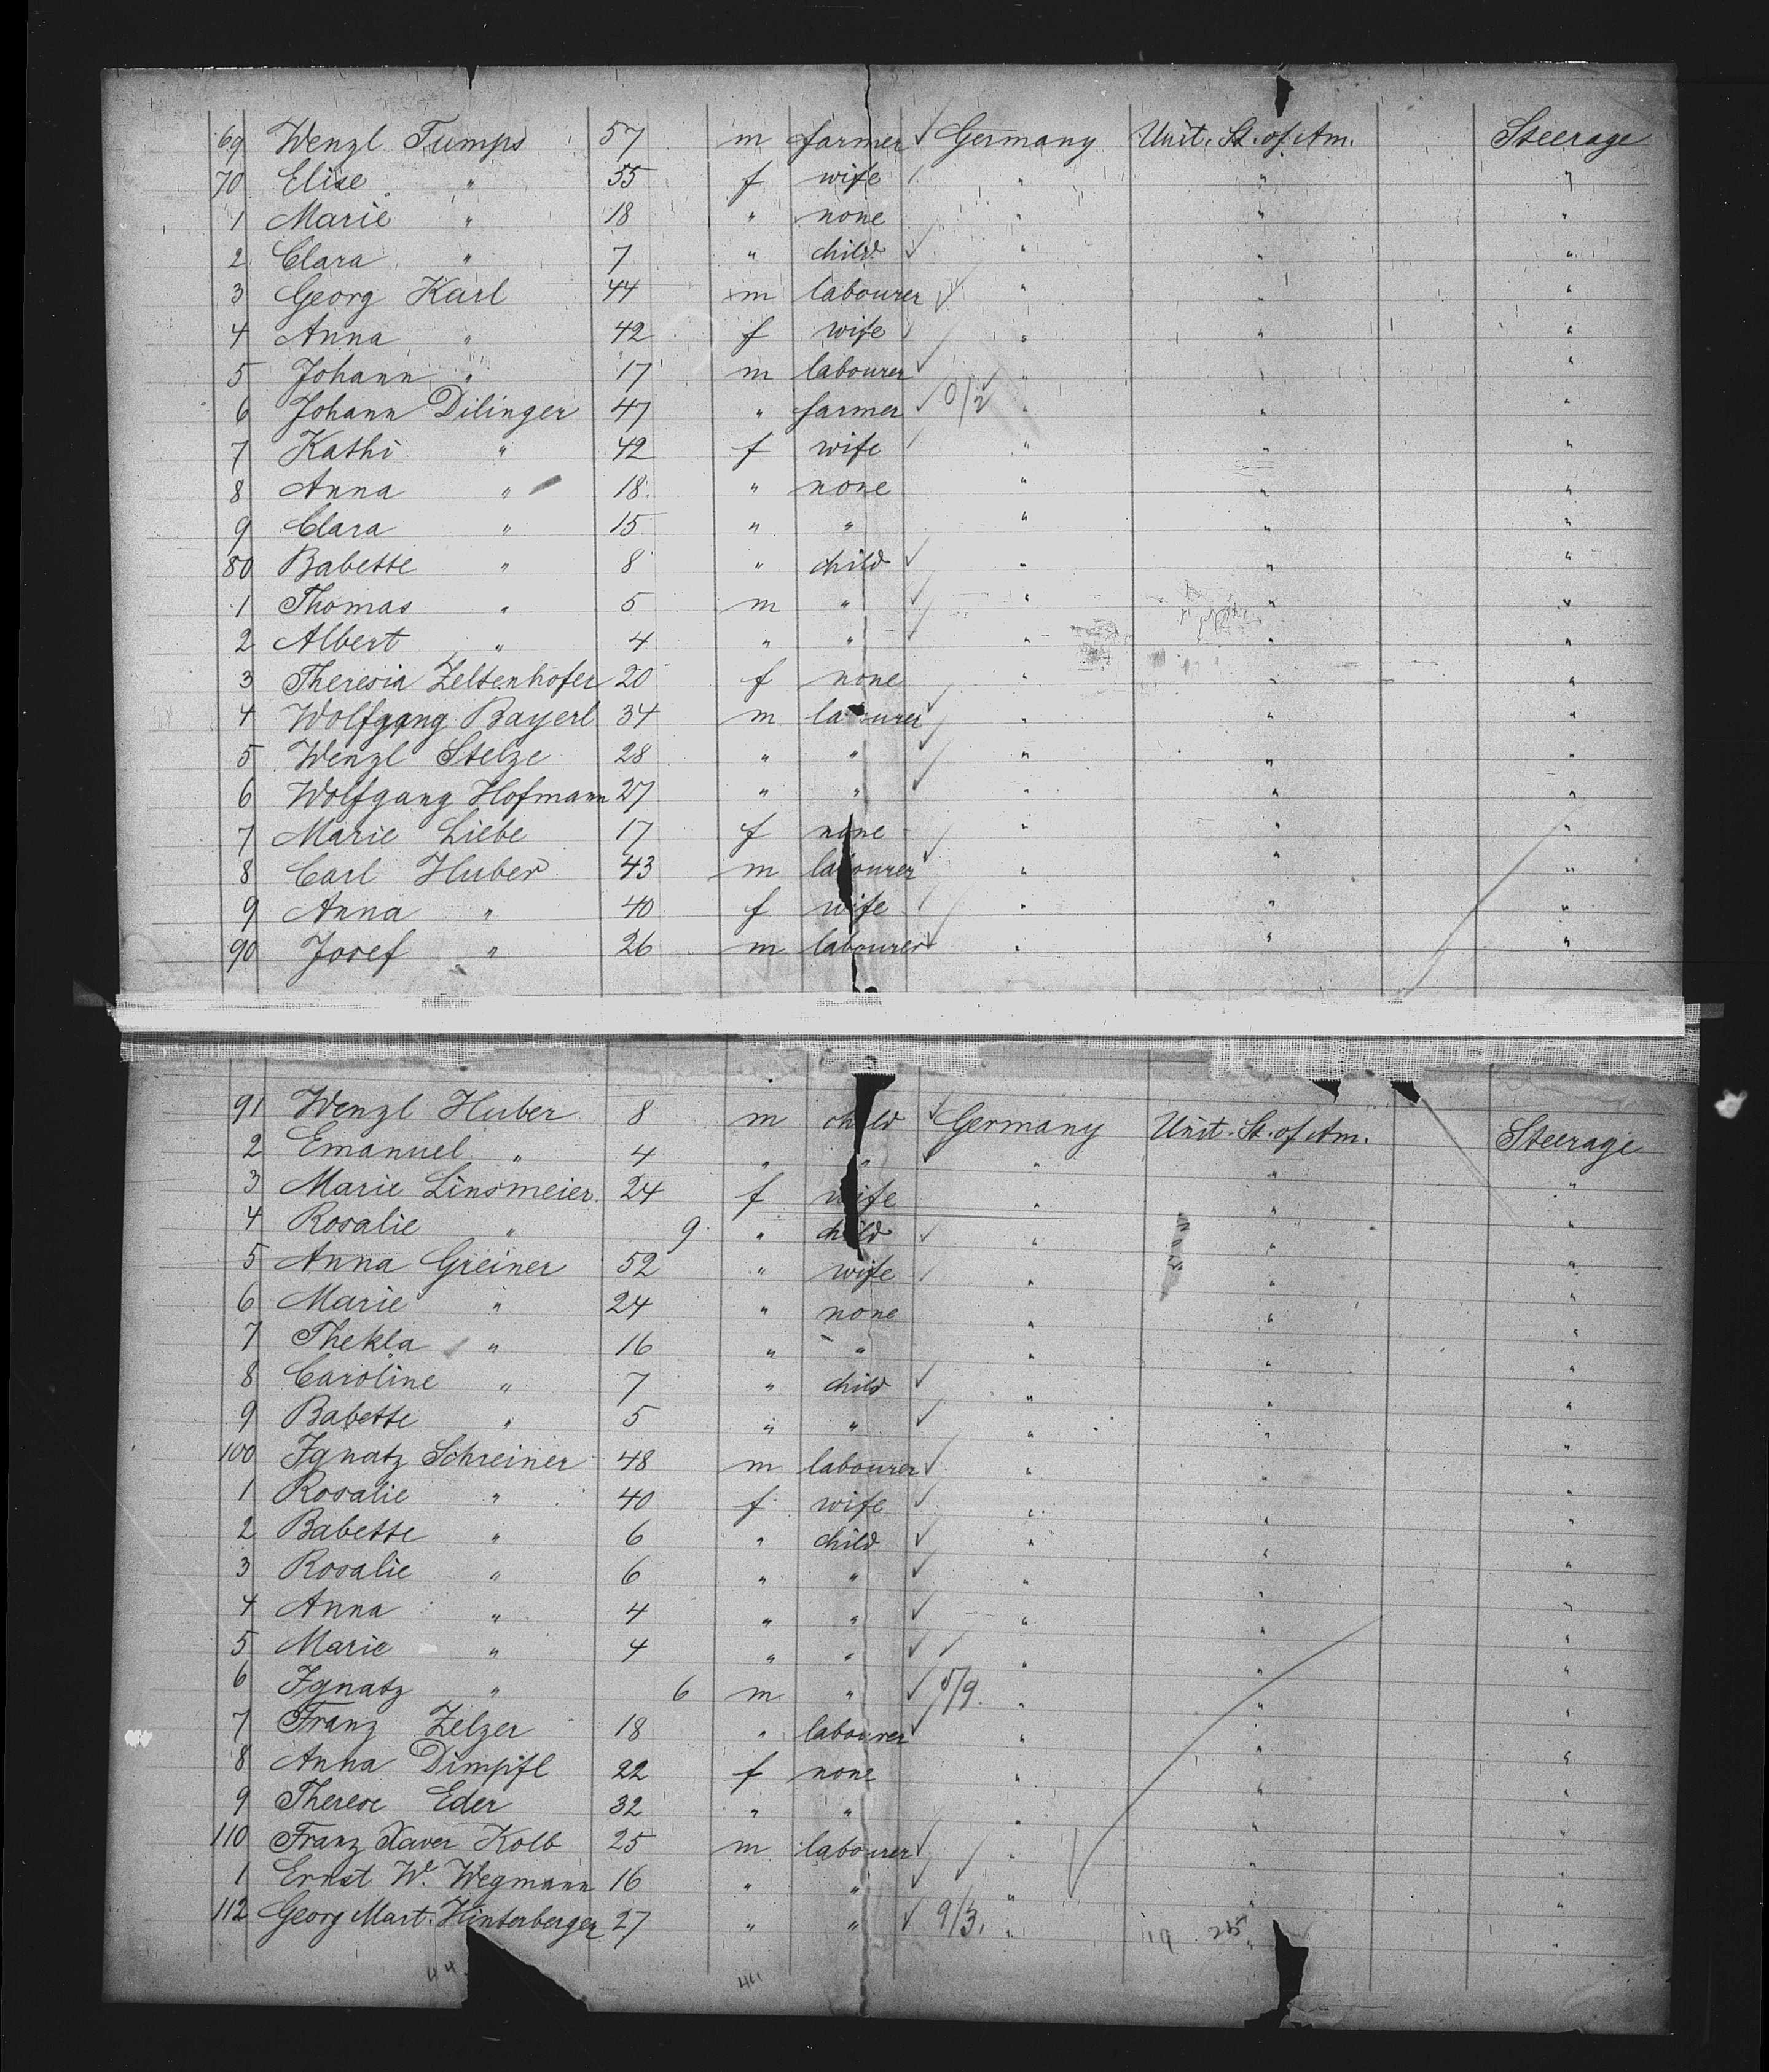 69 Wenzl Tumps 57 m farmer ✓ Germany Unit. St. of Am. Steerage
70 Elise " 55 f wife " " "
1 Marie " 18 " none " " "
2 Clara " 7 " child ✓ " " "
3 Georg Karl 44 m labourer ✓ " " "
4 Anna " 42 f wife ✓ " " "
5 Johann " 17 m labourer ✓ " " "
6 Johann Dilinger 47 " farmer ✓ 0/2 " " "
7 Kathi " 42 f wife " " "
8 Anna " 18 " none " " "
9 Clara " 15 " " " " "
80 Babette " 8 " child ✓ " " "
1 Thomas " 5 m " ✓ " " "
2 Albert " 4 " " ✓ " " "
3 Theresia Zeltenhofer 20 f none " " "
4 Wolfgang Bayerl 34 m labourer ✓ " " "
5 Wenzl Stelze 28 " " ✓ " " "
6 Wolfgang Hofmann 27 " " ✓ " " "
7 Marie Liebe 17 f none " " "
8 Carl Huber 43 m labourer ✓ " " "
9 Anna " 40 f wife ✓ " " "
90 Josef " 26 m labourer ✓ " " "
91 Wenzl Huber 8 m child ✓ Germany Unit. St. of Am. Steerage
2 Emanuel " 4 " " ✓ " " "
3 Marie Linsmeier 24 f wife " " "
4 Rosalie " 9 " child ✓ " " "
5 Anna Greiner 52 " wife ✓ " " "
6 Marie " 24 " none " " "
7 Thekla " 16 " " " " "
8 Caroline " 7 " child ✓ " " "
9 Babette " 5 " " ✓ " " "
100 Ignatz Schreiner 48 m labourer ✓ " " "
1 Rosalie " 40 f wife ✓ " " "
2 Babette " 6 " child ✓ " " "
3 Rosalie " 6 " " ✓ " " "
4 Anna " 4 " " ✓ " " "
5 Marie " 4 " " ✓ " " "
6 Ignatz " 6 m " ✓ 5/9. " " "
7 Franz Zelzer 18 " labourer ✓ " " "
8 Anna Dimpfl 22 f none " " "
9 Therese Eder 32 " " " " "
110 Franz Xaver Kolb 25 m labourer ✓ " " "
1 Ernst W. Wegmann 16 " " ✓ " " "
112 Georg Mart. Hinterberger 27 " " ✓ 9/3. " " "
19 25
44 44